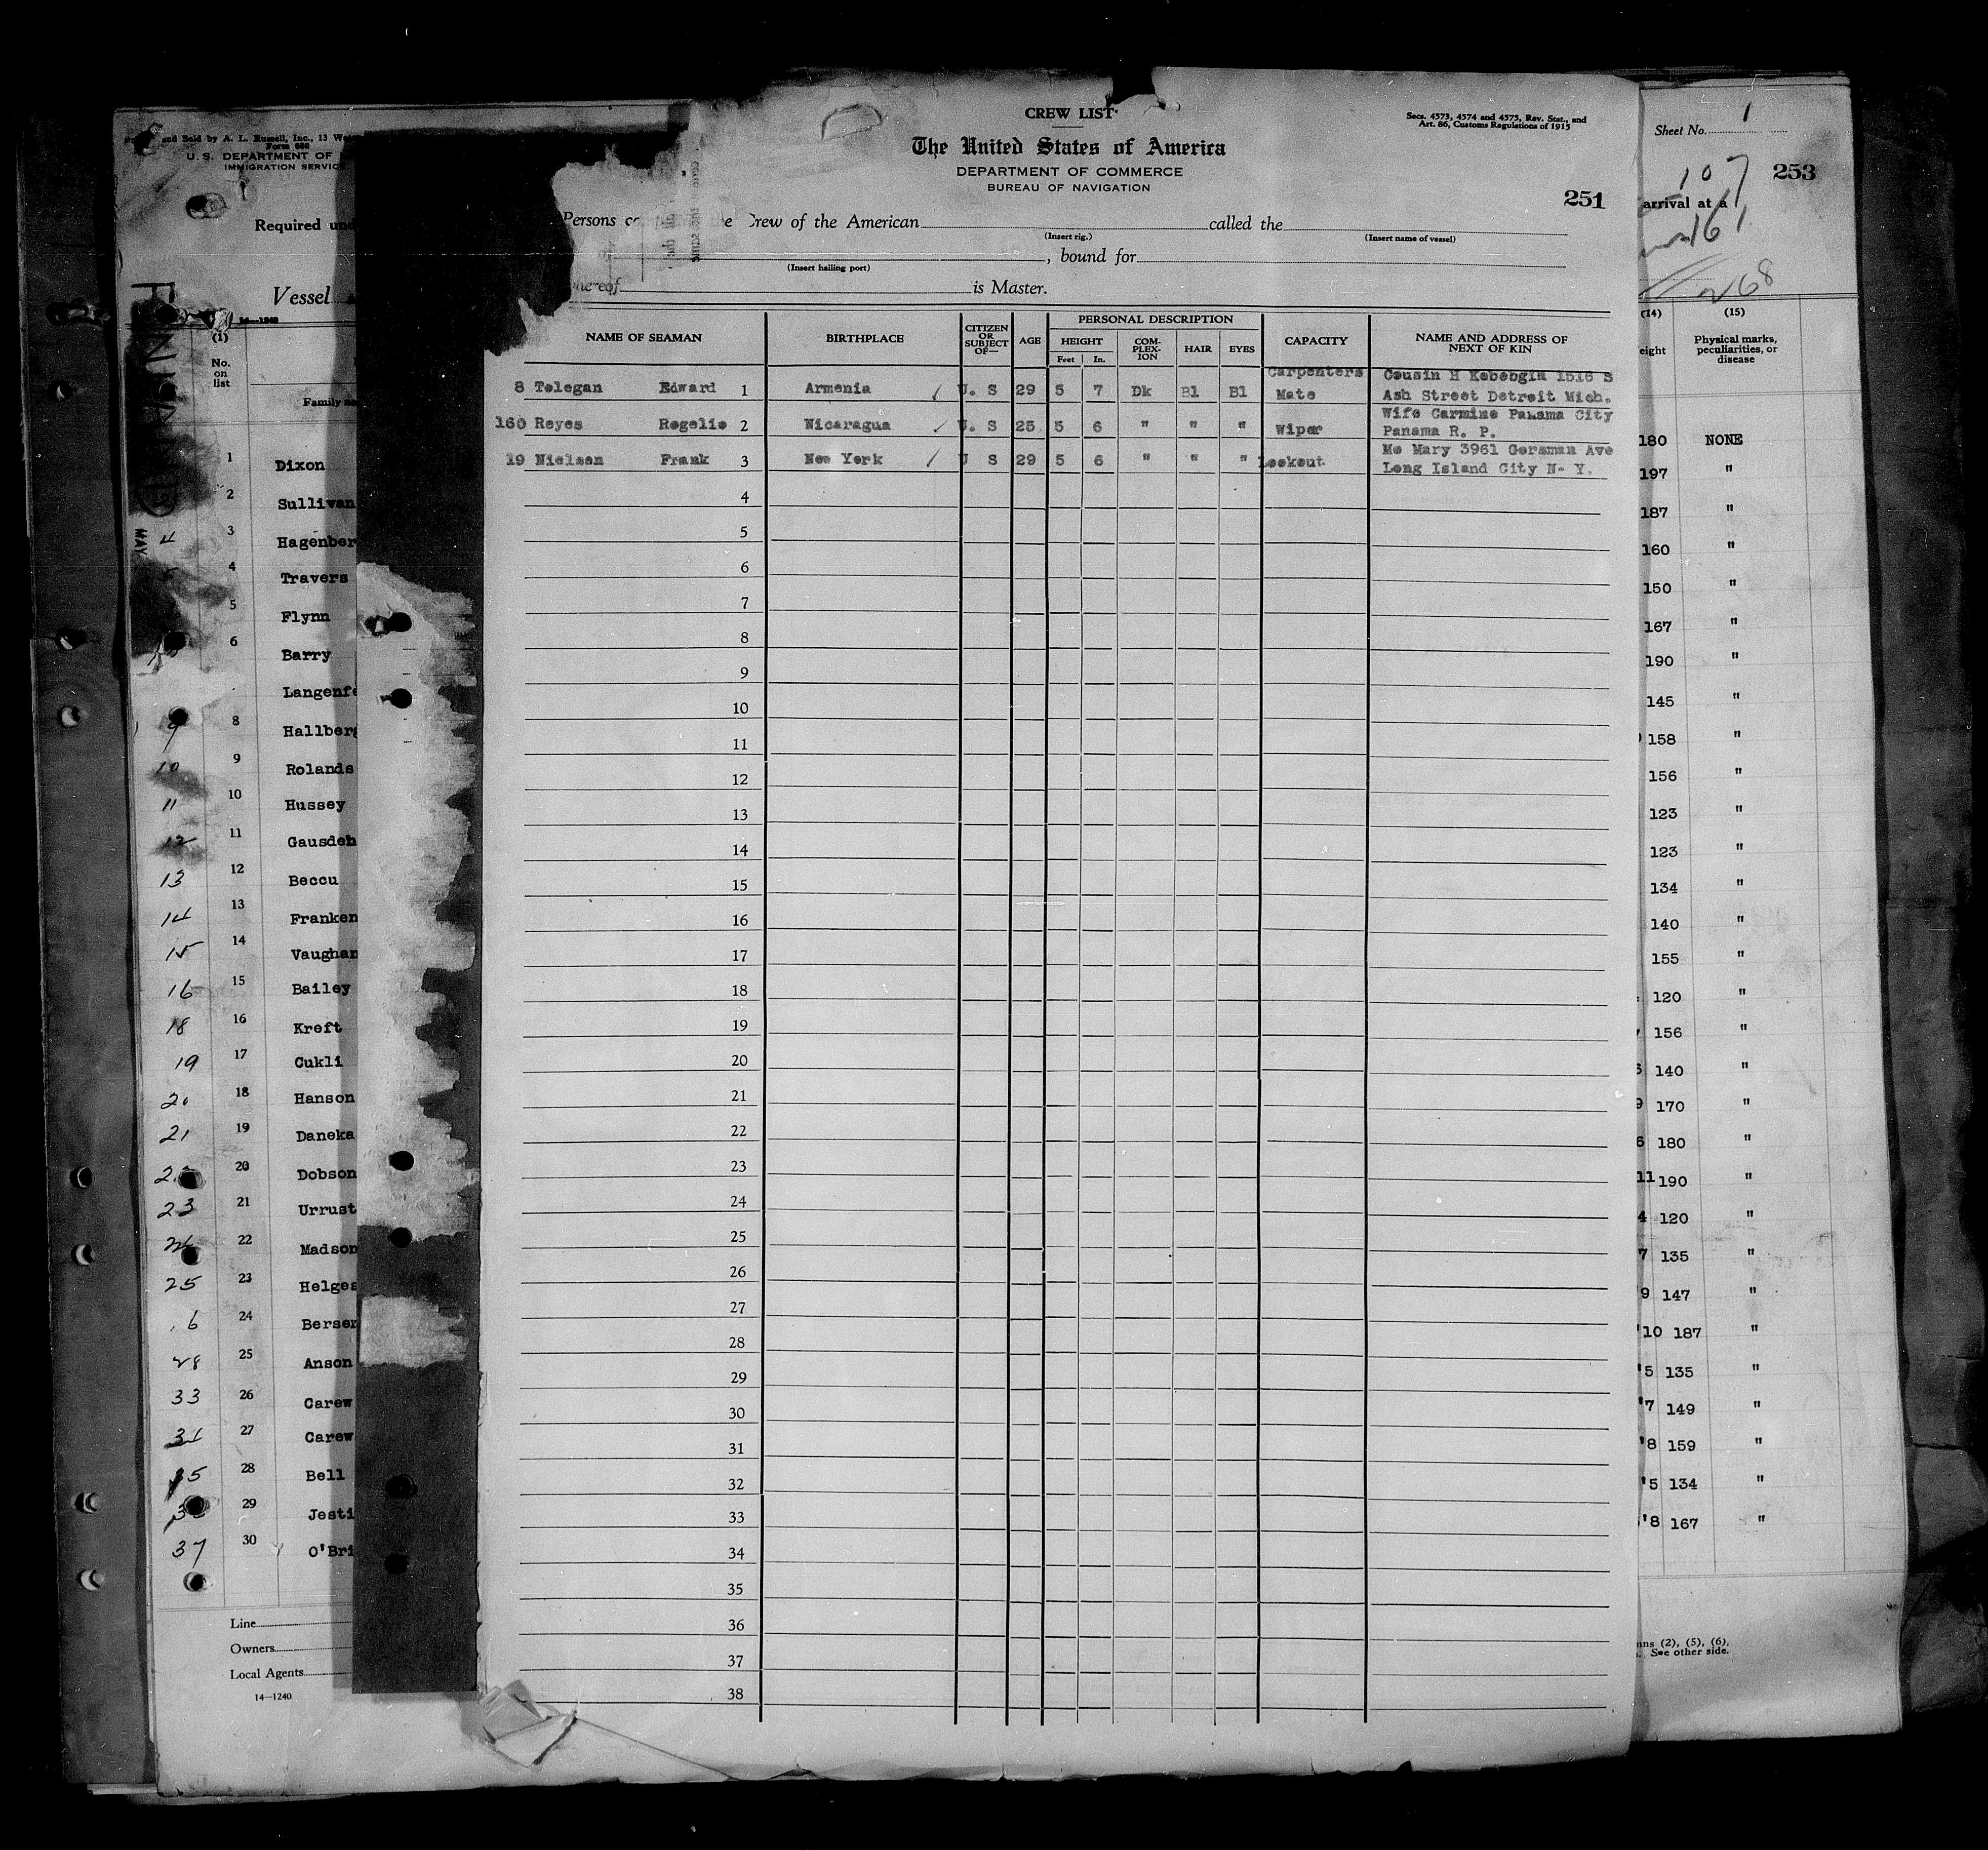 CREW LIST
Secs. 4573, 4574 and 4575, Rev. Stat., and
Art. 86, Customs Regulations of 1915
The United States of America
DEPARTMENT OF COMMERCE
BUREAU OF NAVIGATION
251
Persons Crew of the American called the
(Insert rig.) (Insert name of vessel)
, bound for
(Insert hailing port)
whereof is Master.
NAME OF SEAMAN BIRTHPLACE CITIZEN OR SUBJECT OF— AGE PERSONAL DESCRIPTION CAPACITY NAME AND ADDRESS OF NEXT OF KIN
HEIGHT COM-PLEX-ION HAIR EYES
Feet In.
8 Telegan Edward 1 Armenia U. S 29 5 7 Dk Bl Bl Carpenters Mate Cousin H Kebebgin 1516 S
Ash Street Detroit Mich.
160 Reyes Rogelio 2 Nicaragua U. S 25 5 6 " " " Wiper Wife Carmine Panama City
Panama R. P.
19 Nielsen Frank 3 New York U S 29 5 6 " " " Lookout Mo Mary 3961 Gorsman Ave
Long Island City N- Y.
4
5
6
7
8
9
10
11
12
13
14
15
16
17
18
19
20
21
22
23
24
25
26
27
28
29
30
31
32
33
34
35
36
37
38
and Sold by A. L. Russell, Inc., 13
Form 680
U. S. DEPARTMENT OF
IMMIGRATION SERVICE
Required
Vessel
14—1240
(1)
No.
on
list
Family
MAY
1 Dixon
2 Sullivan
4 3 Hagenber
4 Travers
5 Flynn
6 Barry
Langenfe
9 8 Hallberg
10 9 Rolands
11 10 Hussey
12 11 Gausdeh
13 12 Beccu
14 13 Franken
15 14 Vaughan
16 15 Bailey
18 16 Kreft
19 17 Cukli
20 18 Hanson
21 19 Daneka
20 Dobson
23 21 Urrust
24 22 Madson
25 23 Helges
6 24 Berser
28 25 Anson
33 26 Carew
27 Carew
35 28 Bell
29 Jesti
37 30 O'Bri
Line
Owners
Local Agents
14—1240
Sheet No. 1
107
253
arrival at a
161
268
(14) (15)
eight Physical marks,
peculiarities, or
disease
180 NONE
197 "
187 "
160 "
150 "
167 "
190 "
145 "
158 "
156 "
123 "
123 "
134 "
140 "
155 "
120 "
156 "
140 "
170 "
180 "
11 190 "
4 120 "
7 135 "
9 147 "
'10 187 "
'5 135 "
'7 149 "
'8 159 "
'5 134 "
'8 167 "
(2), (5), (6),
See other side.